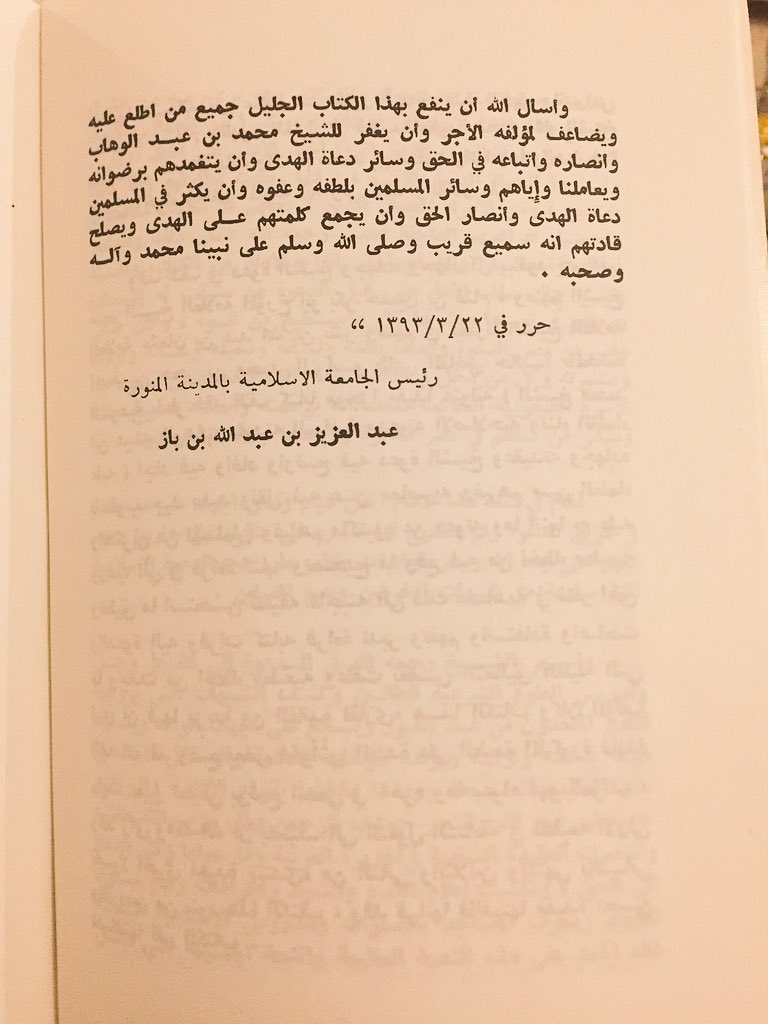 وأسأل الله أن ينفع بهذا الكتاب الجليل جميع من اطلع عليه
ويضاعف لمؤلفه الأجر وأن يغفر للشيخ محمد بن عبد الوهاب
وأنصاره وأتباعه في الحق وسائر دعاة الهدى وأن يتغمدهم برضوانه
ويعاملنا وإياهم وسائر المسلمين بلطفه وعفوه وأن يكثر في المسلمين
دعاة الهدى وأنصار الحق وأن يجمع كلمتهم على الهدى ويصلح
قادتهم انه سميع قريب وصلى الله وسلم على نبينا محمد وآله
وصحبه .
حرر في ١٣٩٣/٣/٢٢ »
رئيس الجامعة الاسلامية بالمدينة المنورة
عبد العزيز بن عبد الله بن باز